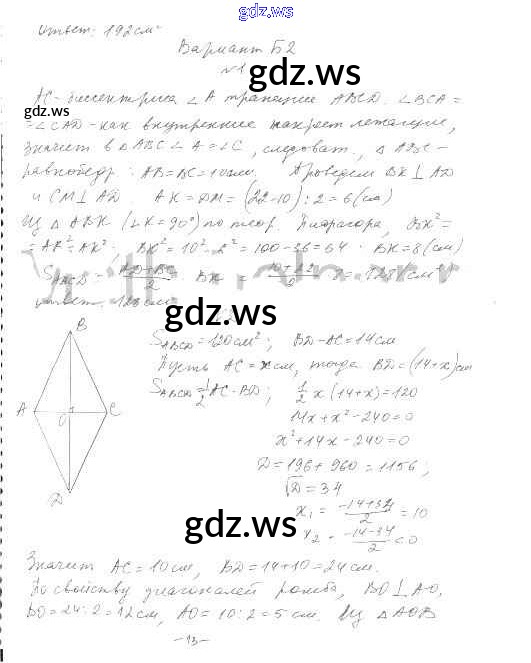 gdz.ws
Ответ: 192 см²
Вариант Б2
№1
gdz.ws
AC - биссектриса ∠A трапеции ABCD. ∠BCA =
= ∠CAD - как внутренние накрест лежащие,
значит в △ABC ∠A = ∠C, следоват., △ABC -
равнобедр. AB = BC = 10 см. Проведем BK ⊥ AD
и CM ⊥ AD. AK = DM = (22-10) : 2 = 6 (см)
Из △ABK (∠K = 90°) по теор. Пифагора, BK² =
= AB² - AK²; BK² = 10² - 6² = 100 - 36 = 64. BK = 8 (см)
S ABCD = (AD+BC)/2 · BK = (10+22)/2 · 8 = 128 (см²)
Ответ: 128 см²
gdz.ws
S ABCD = 120 см²; BD - AC = 14 см
Пусть AC = x см, тогда BD = (14+x) см
S ABCD = 1/2 AC · BD; 1/2 x (14+x) = 120
14x + x² - 240 = 0
x² + 14x - 240 = 0
D = 196 + 960 = 1156;
√D = 34
x₁ = (-14+34)/2 = 10
x₂ = (-14-34)/2 < 0
B
A
O
C
D
gdz.ws
Значит AC = 10 см, BD = 14+10 = 24 см.
По свойству диагоналей ромба, BO ⊥ AO,
BO = 24 : 2 = 12 см, AO = 10 : 2 = 5 см. Из △AOB
- 13 -
gdz.ws